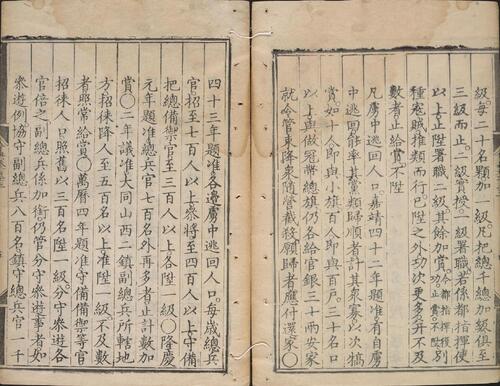 級每二十名顆加一級凡把總千總加級俱至
三級而止二級實授一級署職若係都指揮使
以上止陞署職二級其餘加賞
種寇賊推類而行已陞之外功次更多并不及
數者止給賞不陞
凡虜中逃回人口嘉靖四十二年題准有自虜
中逃回能率其黨類歸順者計其衆寡以次犒
賞如十人即與小旗百人即與百戶三名口
以上與做冠帶總旗仍各給官銀三十兩安家
就令管束降來隨營截殺願歸者應付還家〇
四十三年題准各邊虜中逃回人口每歲總兵
官招至七百人以上叅將至四百人以上守備
把總備禦官至三百人以上各陞一級〇隆慶
元年題准總兵官七百名外再多者止計數加
賞〇二年議准大同山西二鎮副總兵所轄地
方招徠降人至五百名以上准陞一級不及數
者照常給賞〇萬曆四年題准守備備禦等官
招徠人口照舊以三百名陞一級分守叅遊各
官倍之副總兵係加銜仍管分守叅遊事者如
叅遊例協守副總兵八百名鎮守總兵官一千